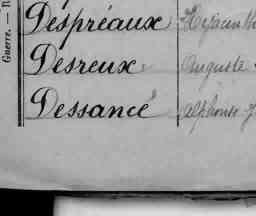 Guerre. —
Despréaux Hyacinth
Desreux Auguste
Dessancé Alphonse J